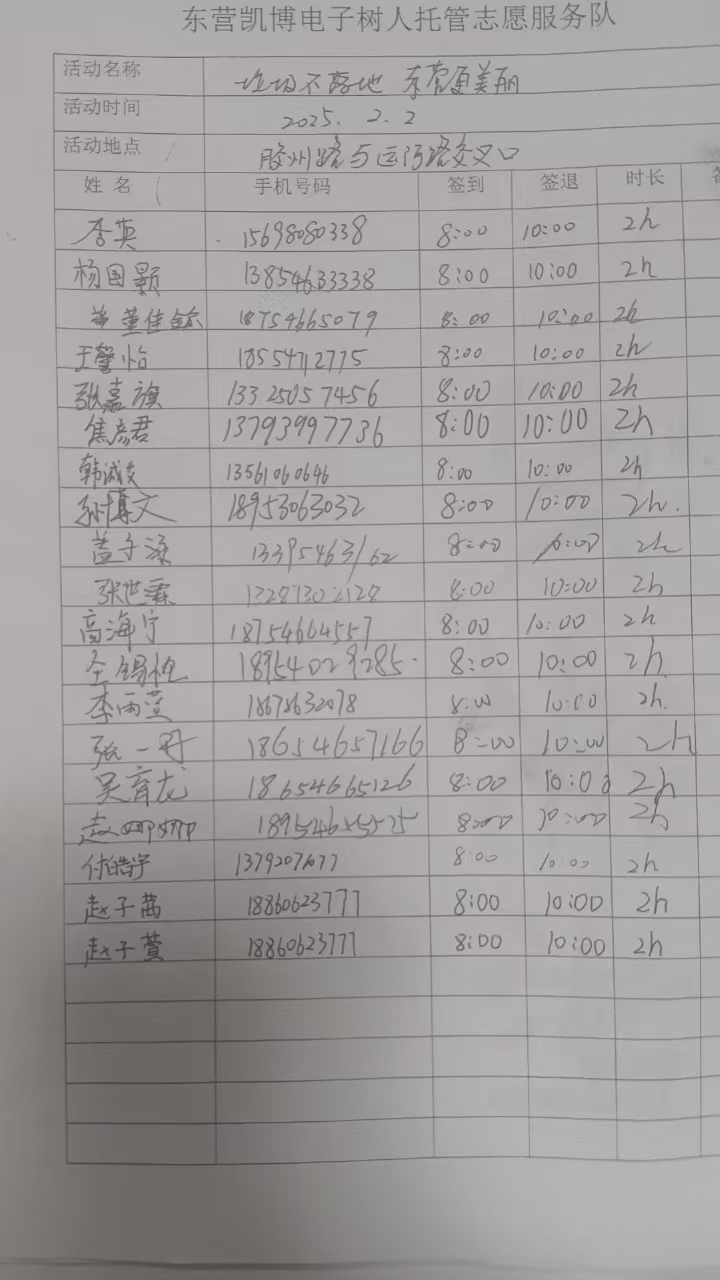 东营凯博电子树人托管志愿服务队
活动名称 垃圾不落地 东营更美丽
活动时间 2025.2.2
活动地点 胶州路与运河路交叉口
姓名 手机号码 签到 签退 时长
李英 15698080338 8:00 10:00 2h
杨国颢 13854633338 8:00 10:00 2h
董佳 18754665079 8:00 10:00 2h
于馨怡 18554712775 8:00 10:00 2h
张嘉旗 13325057456 8:00 10:00 2h
焦彦君 13793997736 8:00 10:00 2h
韩诚 13561060646 8:00 10:00 2h
孙博文 18953063032 8:00 10:00 2h.
盖子涵 13395463162 8:00 10:00 2h
张世霖 13287302128 8:00 10:00 2h
高海宁 18754664557 8:00 10:00 2h
18954029285. 8:00 10:00 2h
李雨萱 18678632078 8:00 10:00 2h.
张一 18654657166 8:00 10:00 2h
吴育龙 18654665126 8:00 10:00 2h
赵 8:00 10:00 2h
付皓宇 8:00 10:00 2h
赵子茜 18860623777 8:00 10:00 2h
赵子萱 18860623777 8:00 10:00 2h